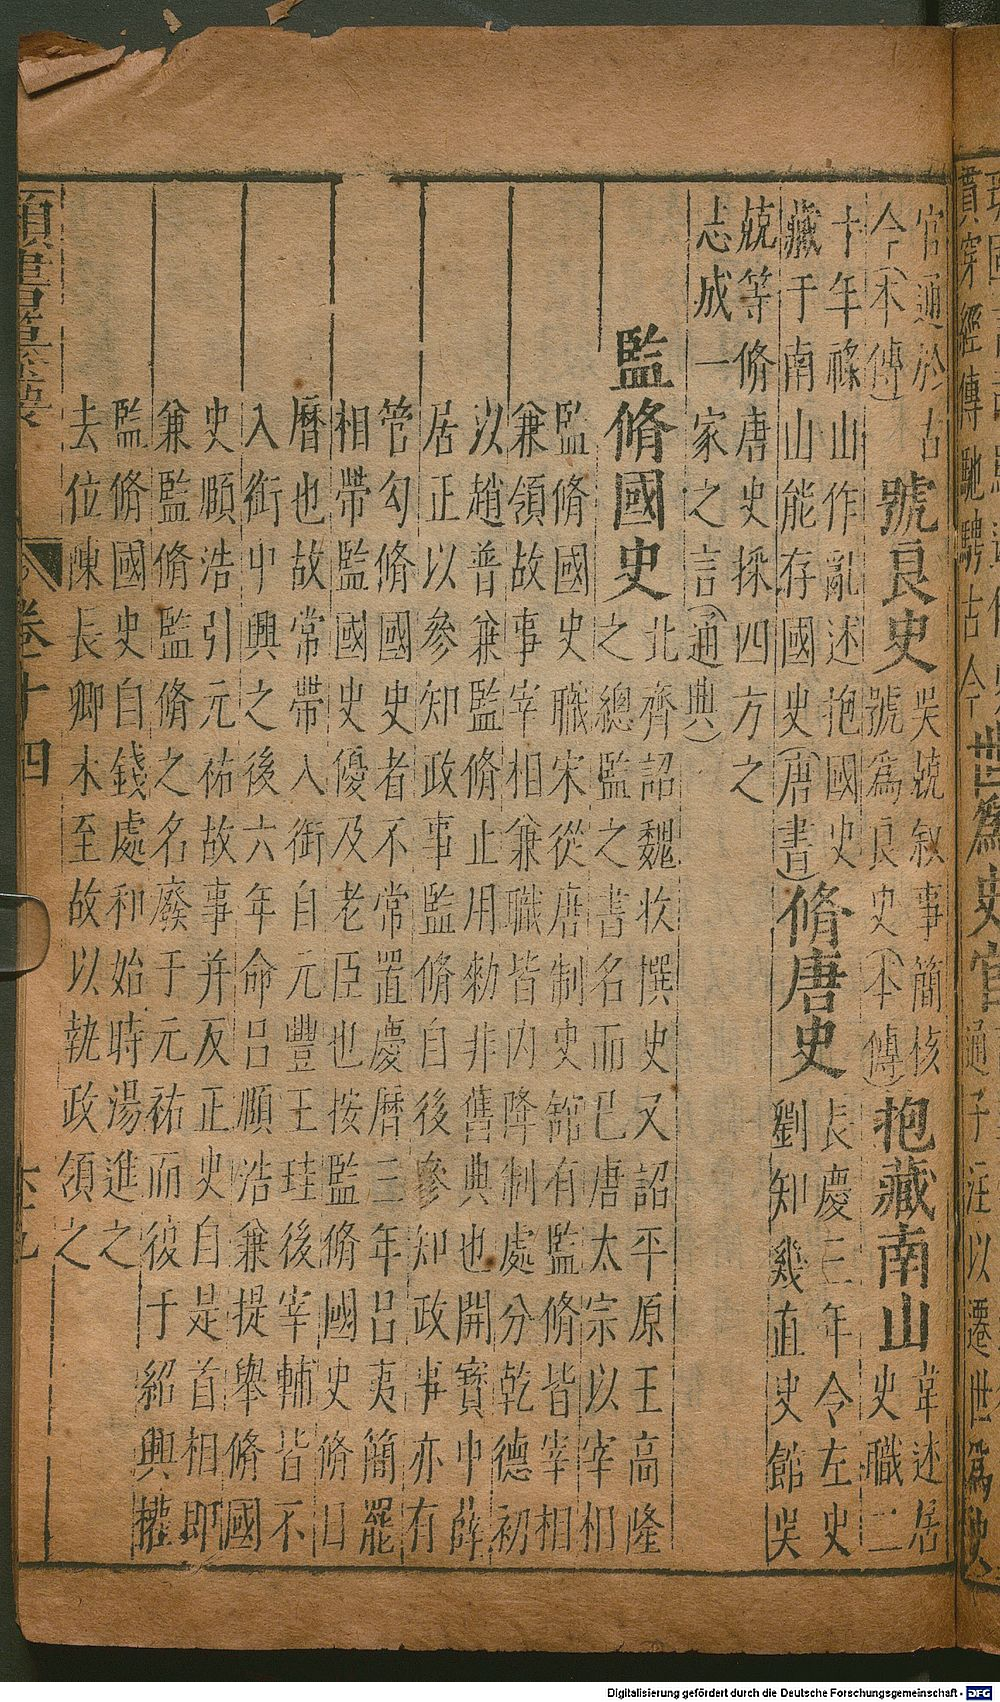 賁穿經傳馳騁古今世爲史官通子注以遷世爲史
官通於古
今(本傳)
號良史
吳兢叙事簡核
號爲良史(本傳)
抱藏南山
韋述居
史職二
十年祿山作亂述抱國史
藏于南山能存國史(唐書)
脩唐史
長慶三年令左史
劉知幾直史館吳
兢等脩唐史採四方之
志成一家之言(通典)
監脩國史
北齊詔魏收撰史又詔平原王高隆
之總監之書名而已唐太宗以宰相
監脩國史職宋從唐制史館有監脩皆宰相
兼領故事宰相兼職皆内降制處分乾德初
以趙普兼監脩止用勑非舊典也開寶中薛
居正以參知政事監脩自後參知政事亦有
管勾脩國史者不常置慶曆三年呂夷簡罷
相帶監國史優及老臣也按監脩國史脩日
曆也故常帶入銜自元豐王珪後宰輔皆不
入銜中興之後六年命呂順浩兼提舉脩國
史順浩引元祐故事并反正史自是首相即
兼監脩監脩之名廢于元祐而彼于紹興權
監脩國史自錢處和始時湯進之
去位陳長卿木至故以執政領之
類書纂要
卷十四
Digitalisierung gefördert durch die Deutsche Forschungsgemeinschaft - DFG